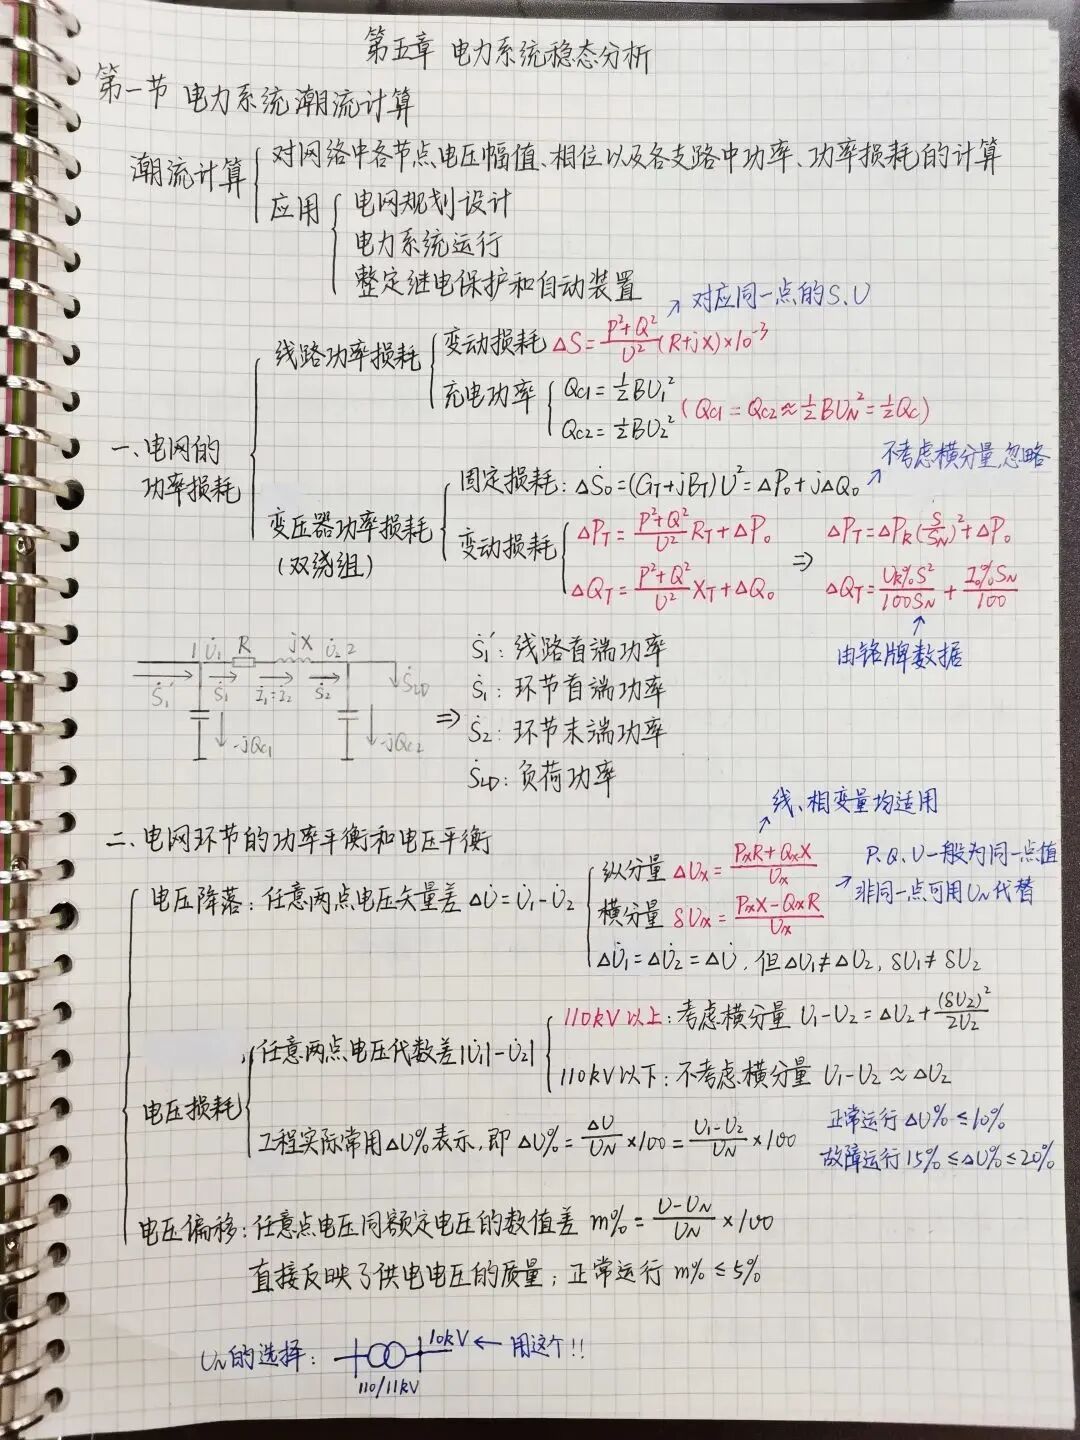 第五章 电力系统稳态分析
第一节 电力系统潮流计算
潮流计算
对网络中各节点电压幅值、相位以及各支路中功率、功率损耗的计算
应用
电网规划设计
电力系统运行
整定继电保护和自动装置
一、电网的
功率损耗
线路功率损耗
变动损耗 ΔS=(P²+Q²)/U²(R+jX)×10⁻³
↗ 对应同一点的S、U
充电功率
Qc1=½BU₁²
Qc2=½BU₂²
(Qc1=Qc2≈½BU_N²=½Qc)
变压器功率损耗
(双绕组)
固定损耗: ΔṠ₀=(G_T+jB_T)U²=ΔP₀+jΔQ₀
↗ 不考虑横分量,忽略
变动损耗
ΔP_T=(P²+Q²)/U² R_T+ΔP₀ ⇒ ΔP_T=ΔP_k(S/S_N)²+ΔP₀
ΔQ_T=(P²+Q²)/U² X_T+ΔQ₀ ΔQ_T=U_k%S²/100S_N+I₀%S_N/100
↑ 由铭牌数据
1 U̇₁ R jX U̇₂ 2
Ṡ₁′ Ṡ₁ İ₁=İ₂ Ṡ₂ Ṡ_LD
-jQc1 -jQc2
⇒
Ṡ₁′: 线路首端功率
Ṡ₁: 环节首端功率
Ṡ₂: 环节末端功率
Ṡ_LD: 负荷功率
二、电网环节的功率平衡和电压平衡
电压降落: 任意两点电压矢量差 ΔU̇=U̇₁-U̇₂
纵分量 ΔUx=(PxR+QxX)/Ux
↗ 线、相变量均适用
横分量 δUx=(PxX-QxR)/Ux
↗ P、Q、U一般为同一点值
非同一点可用U_N代替
ΔU̇₁=ΔU̇₂=ΔU̇,但ΔU₁≠ΔU₂,δU₁≠δU₂
电压损耗
任意两点电压代数差|U̇₁|-|U̇₂|
110kV以上: 考虑横分量 U₁-U₂=ΔU₂+(δU₂)²/2U₂
110kV以下: 不考虑横分量 U₁-U₂≈ΔU₂
工程实际常用ΔU%表示,即 ΔU%=ΔU/U_N×100=(U₁-U₂)/U_N×100
正常运行 ΔU%≤10%
故障运行 15%≤ΔU%≤20%
电压偏移: 任意点电压同额定电压的数值差 m%=(U-U_N)/U_N×100
直接反映了供电电压的质量; 正常运行 m%≤5%
U_N的选择: 10kV ← 用这个!!
110/11kV